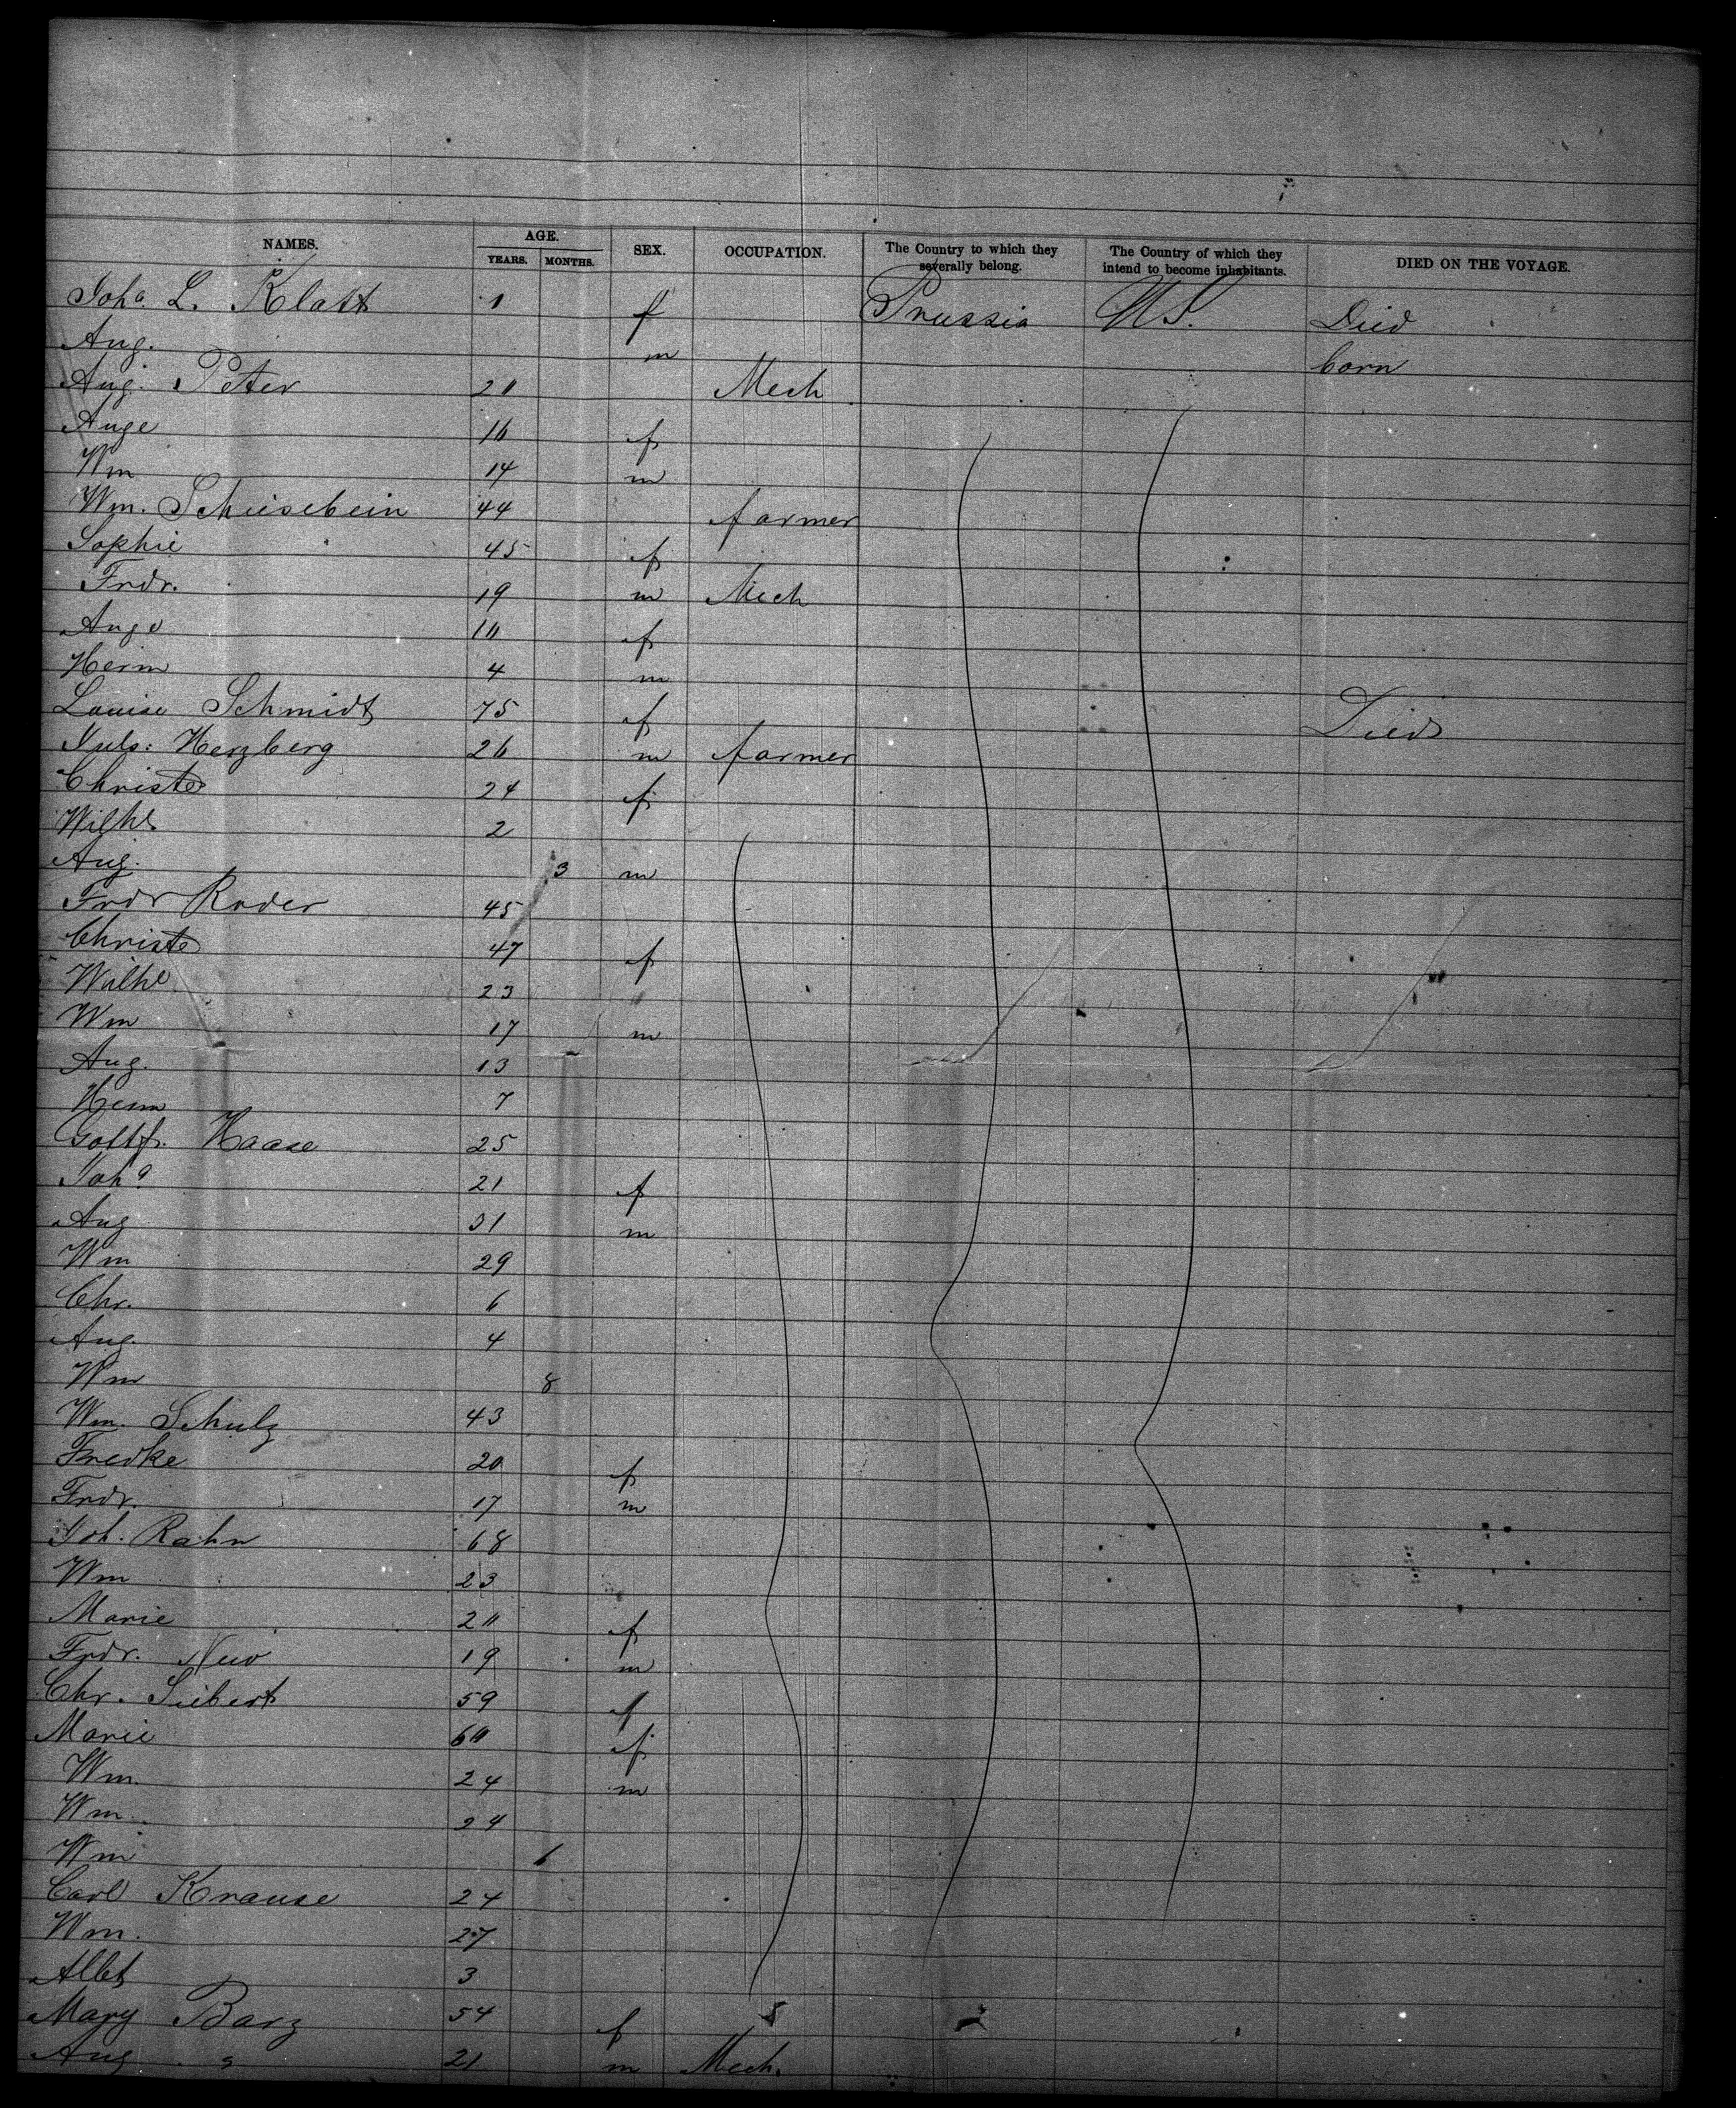 NAMES. AGE. YEARS. MONTHS. SEX. OCCUPATION. The Country to which they severally belong. The Country of which they intend to become inhabitants. DIED ON THE VOYAGE.
Joha. L. Klatt 1 f Prussia U.S. Died
Aug. m born
Aug. Peter 20 Mech
Auge 16 f
Wm 14 m
Wm. Schiesebein 44 farmer
Sophie 45 f
Frdr. 19 m Mech
Auge 10 f
Herm 4 m
Louise Schmidt 75 f Died
Juls: Herzberg 26 m farmer
Christe 24 f
Wilhe 2
Aug. 3 m
Frdr Roder 45
Christe 47 f
Wilhe 23
Wm 17 m
Aug. 13
Herm 7
Gottfr. Haase 25
Joha 21 f
Aug 31 m
Wm 29
Chr. 6
Aug. 4
Wm 8
Wm. Schulz 43
Fredke 20 f
Frdr. 17 m
Joh. Rahn 68
Wm 23
Marie 20 f
Frdr. 19 m
Chr. Siebert 59
Marie 60 f
Wm. 24 m
Wm. 24
Wm 6
Carl Krause 24
Wm. 27
Albt 3
Mary Barz 54 f
Aug 21 m Mech.